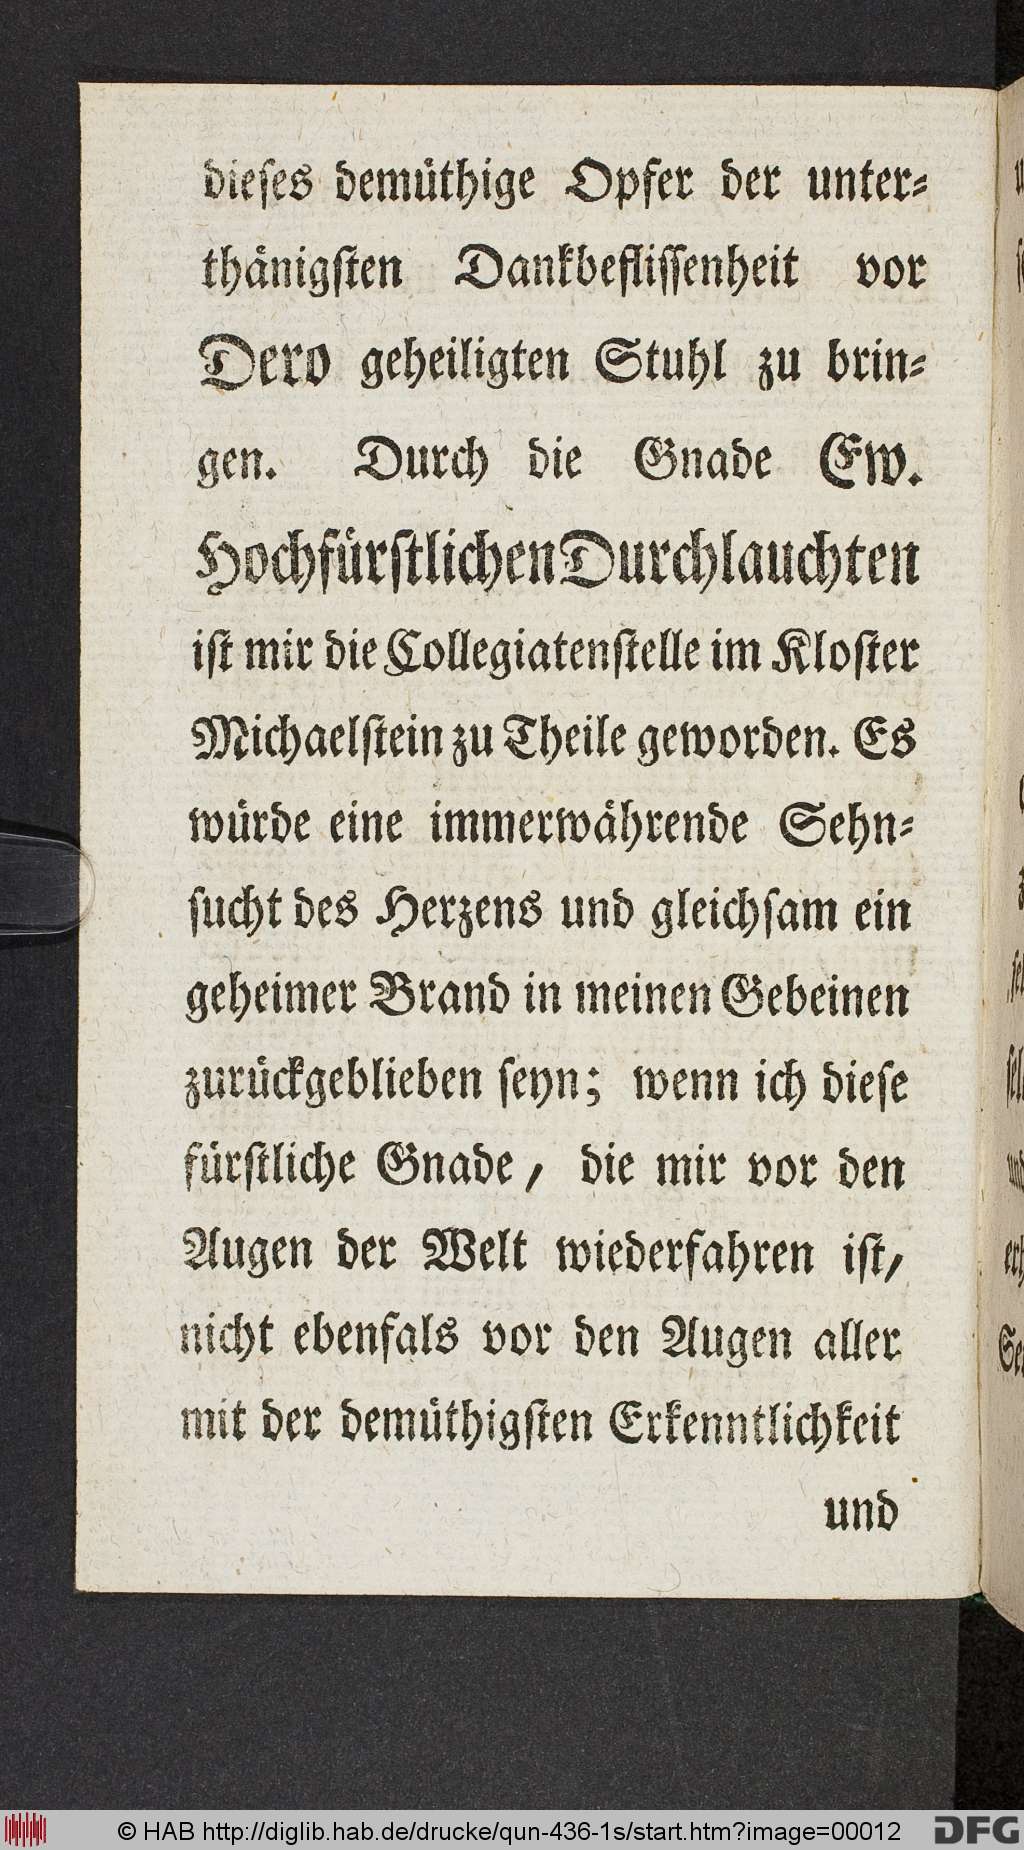 dieses demüthige Opfer der unter-
thänigsten Dankbeflissenheit vor
Dero geheiligten Stuhl zu brin-
gen. Durch die Gnade Ew.
Hochfürstlichen Durchlauchten
ist mir die Collegiatenstelle im Kloster
Michaelstein zu Theile geworden. Es
würde eine immerwährende Sehn-
sucht des Herzens und gleichsam ein
geheimer Brand in meinen Gebeinen
zurückgeblieben seyn; wenn ich diese
fürstliche Gnade, die mir vor den
Augen der Welt wiederfahren ist,
nicht ebenfals vor den Augen aller
mit der demüthigsten Erkenntlichkeit
und
© HAB http://diglib.hab.de/drucke/qun-436-1s/start.htm?image=00012
DFG